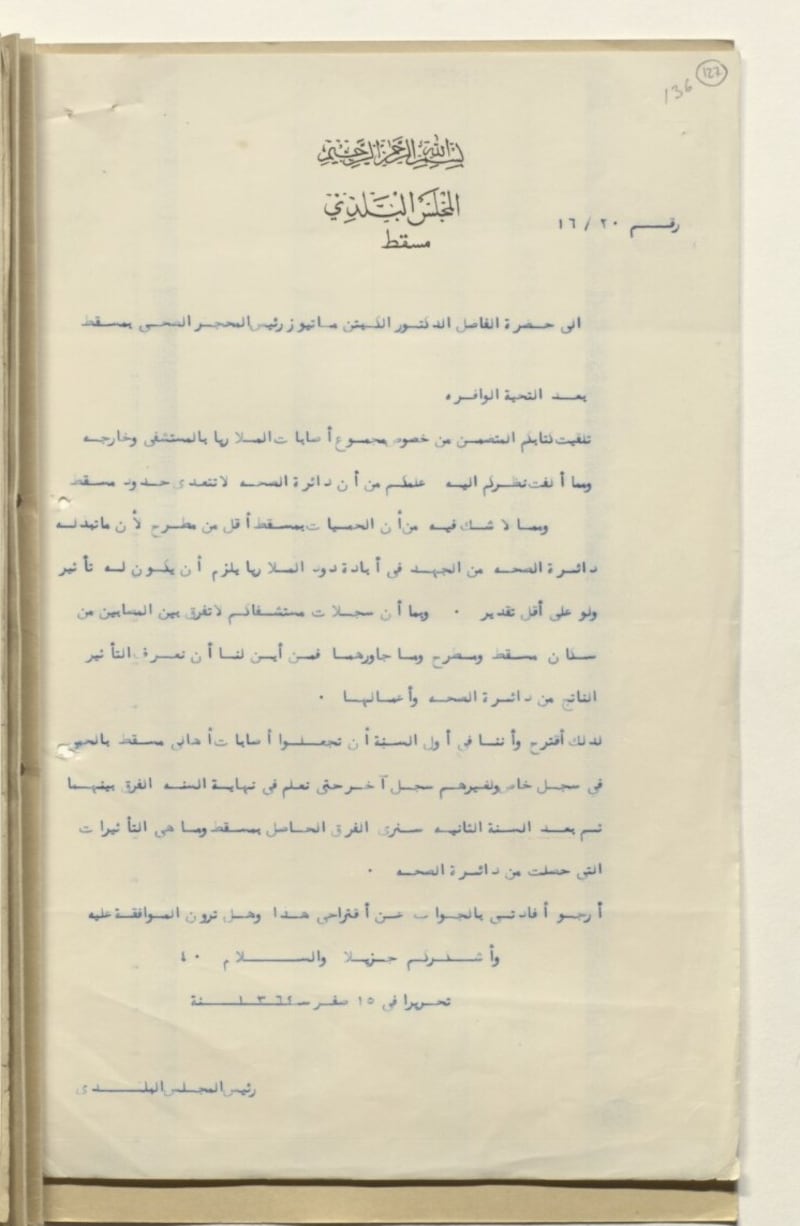 127
136
بسم الله الرحمن الرحيم
المجلس البلدي
مسقط
رقـم ٢٠ / ١٦
الى حضرة الفاضل الدكتور الكبتن ماثيوز رئيس المحجر الصحـى بمسقط
بعـد التحية الوافره
تلقيت كتابكم المتضمن من خصوص مجموع أصابات الملاريا بالمستشفى وخارجه
ومما ألفت نظركم اليه علمكم من أن دائرة الصحه لاتتعدى حدود مسقط
ومما لا شك فيه من أن الحميات بمسقط أقل من مطرح لأن ماتبذله
دائرة الصحه من الجهد فى أبادة دود الملاريا يلزم أن يكون له تأثير
ولو على أقل تقدير ٠ وبما أن سجلات مستشفاكم لاتفرق بين المصابين من
سكان مسقط ومطرح وما جاورهما فمن أين لنا أن نعرف التأثير
الناتج من دائرة الصحه وأعمالها ٠
لذلك أقترح وأننا فى أول السنة أن تجعلوا أصابات أهالى مسقط بالحمى
فى سجل خاص ولغيرهم سجل آخر حتى نعلم فى نهاية السنه الفرق بينهما
ثم بعد السنة الثانيه سنرى الفرق الحاصل بمسقط وما هى التأثيرات
التى حصلت من دائرة الصحه ٠
أرجو أفادتى بالجواب عن أقتراحى هذا وهل ترون الموافقة عليه
وأشكركم جزيلا والسلام ٤٠
تحريرا فى ١٥ صفر سـ ١٣٦٤ ـنة
رئيس المجلس البلدى